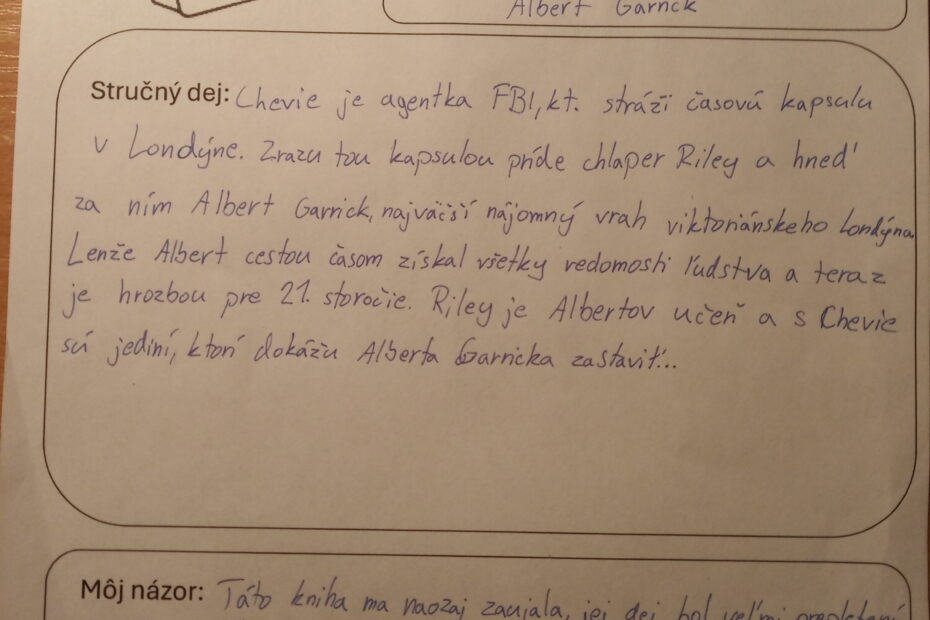 Albert Garrick
Stručný dej: Chevie je agentka FBI, kt. stráži časovú kapsulu
v Londýne. Zrazu tou kapsulou príde chlapec Riley a hneď
za ním Albert Garrick, najväčší nájomný vrah viktoriánskeho Londýna
Lenže Albert cestou časom získal všetky vedomosti ľudstva a teraz
je hrozbou pre 21. storočie. Riley je Albertov učeň a s Chevie
sú jediní, ktorí dokážu Alberta Garricka zastaviť...
Môj názor: Táto kniha ma naozaj zaujala, jej dej bol veľmi